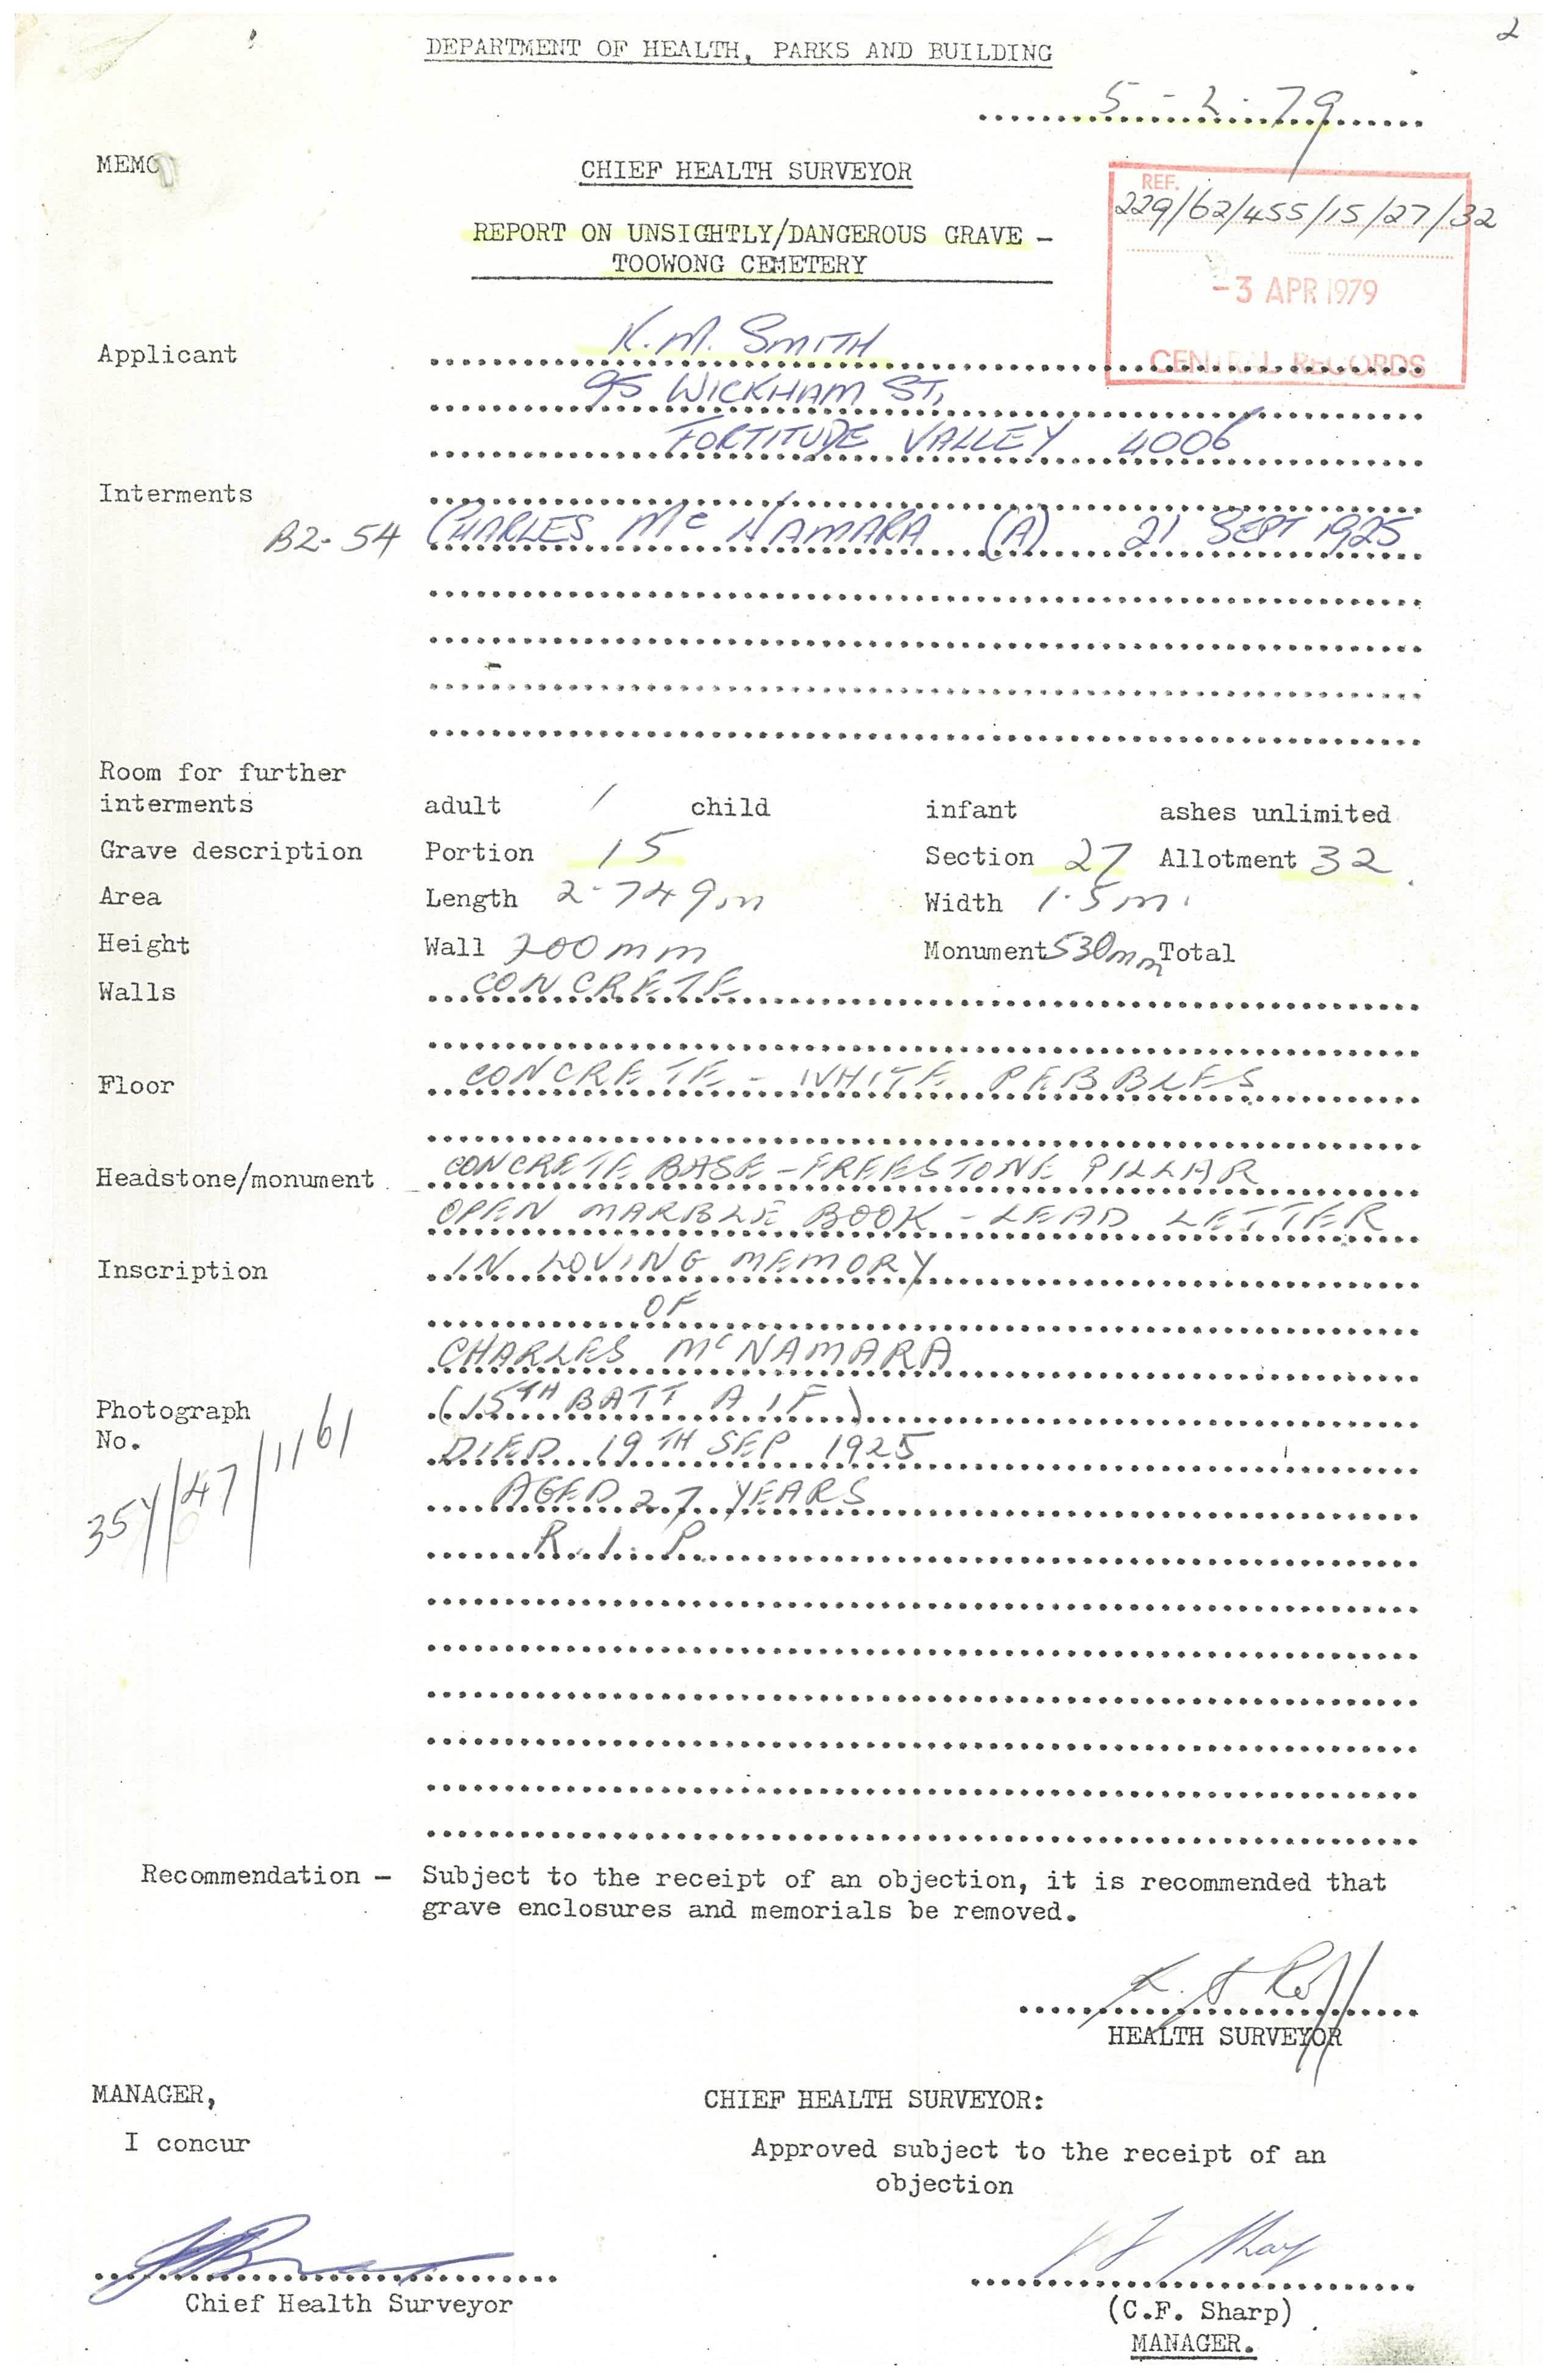 2
DEPARTMENT OF HEALTH, PARKS AND BUILDING
5-2-79
MEMO
CHIEF HEALTH SURVEYOR
REF.
229/62/455/15/27/32
REPORT ON UNSIGHTLY/DANGEROUS GRAVE -
TOOWONG CEMETERY
-3 APR 1979
CENTRAL RECORDS
Applicant K.M. SMITH
95 WICKHAM ST,
FORTITUDE VALLEY 4006
Interments
B2-54 CHARLES Mc NAMARA (A) 21 SEPT 1925
Room for further
interments adult 1 child infant ashes unlimited
Grave description Portion 15 Section 27 Allotment 32
Area Length 2.749m Width 1.5m.
Height Wall 200mm Monument 530mm Total
Walls CONCRETE
Floor CONCRETE - WHITE PEBBLES
Headstone/monument CONCRETE BASE - FREESTONE PILLAR
OPEN MARBLE BOOK - LEAD LETTER
Inscription IN LOVING MEMORY
OF
CHARLES Mc NAMARA
Photograph (15TH BATT A I F)
No. DIED 19TH SEP 1925
AGED 27 YEARS
R.I.P.
Recommendation - Subject to the receipt of an objection, it is recommended that
grave enclosures and memorials be removed.
HEALTH SURVEYOR
MANAGER, CHIEF HEALTH SURVEYOR:
I concur Approved subject to the receipt of an
objection
Chief Health Surveyor
(C.F. Sharp)
MANAGER.